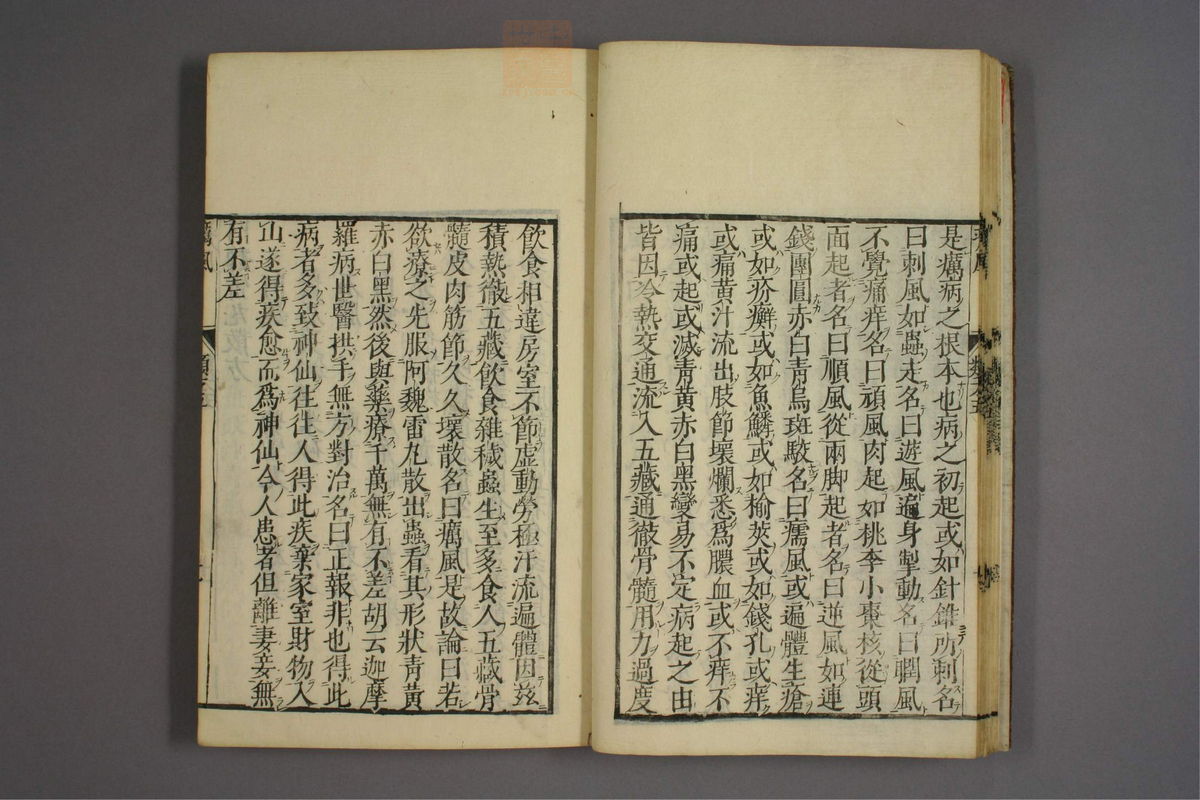 是癘病之根本也病之初起或如針錐所刺名
曰刺風如蟲走名曰遊風遍身掣動名曰瞤風
不覺痛痒名曰頑風肉起如桃李小棗核從頭
面起者名曰順風從兩脚起者名曰逆風如連
錢團圓赤白青烏斑駮名曰癘風或遍體生瘡
或如疥癬或如魚鱗或如榆莢或如錢孔或痒
或痛黃汁流出肢節壞爛悉爲膿血或不痒不
痛或起或滅青黃赤白黑變易不定病起之由
皆因冷熱交通流入五藏通徹骨髓用力過度
飲食相違房室不節虛動勞極汗流遍體因茲
積熱徹五藏飲食雜穢蟲生至多食人五藏骨
髓皮肉筋節久久壞散名曰癘風是故論曰若
欲療之先服阿魏雷丸散出蟲看其形狀青黃
赤白黑然後與藥療千萬無有不差胡云迦摩
羅病世醫拱手無方對治名曰正報非也得此
病者多致神仙往往人得此疾棄家室財物入
山遂得疾愈而爲神仙今人患者但離妻妾無
有不差
癘風